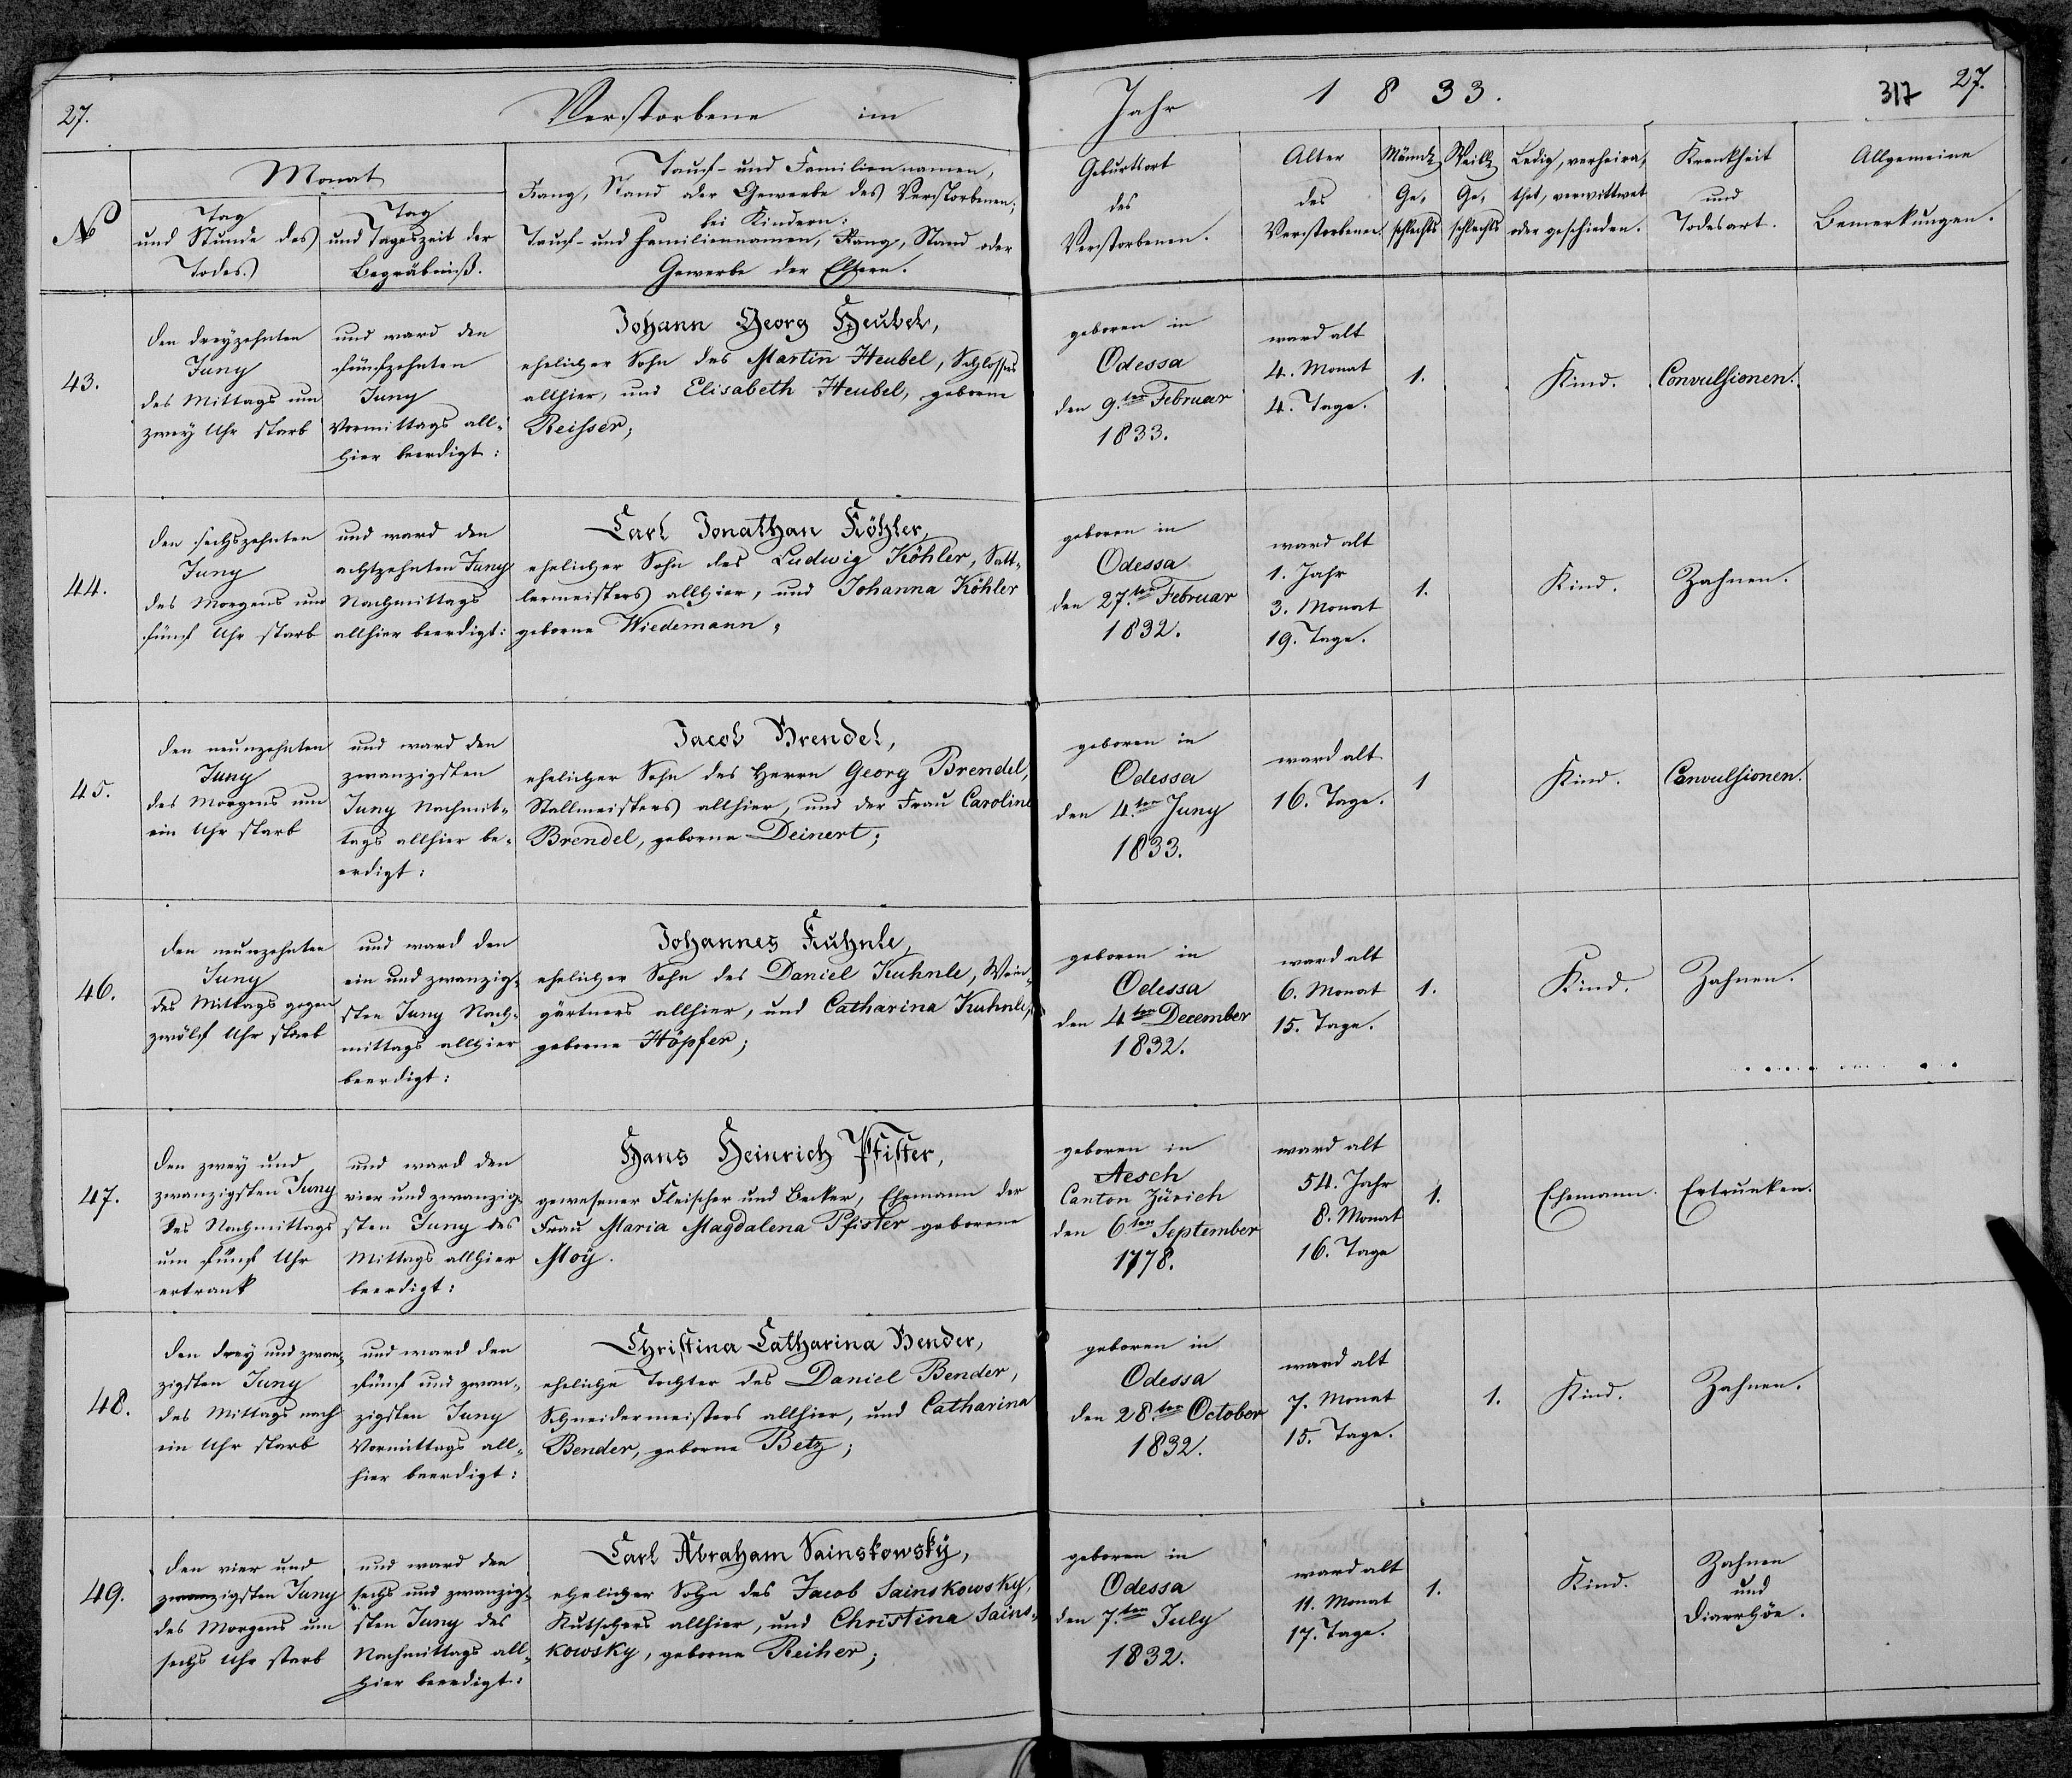 27.
Verstorbene im
Jahr
1833.
317
27.
No
Monat
Tag
und Stunde des
Todes.
Tag
und Tageszeit der
Begräbniß.
Tauf- und Familiennamen,
Rang, Stand oder Gewerbe des Verstorbenen;
bei Kindern:
Tauf- und Familiennamen, Rang, Stand oder
Gewerbe der Eltern.
Geburtsort
des
Verstorbenen.
Alter
des
Verstorbenen
Männl.
Ge-
schlechts
Weibl.
Ge-
schlechts
Ledig, verheira-
thet, verwittwet
oder geschieden.
Krankheit
und
Todesart.
Allgemeine
Bemerkungen.
43.
den dreyzehnten
Juny
des Mittags um
zwey Uhr starb
und ward den
fünfzehnten
Juny
Vormittags all-
hier beerdigt:
Johann Georg Heubel,
ehelicher Sohn des Martin Heubel, Schlossers
allhier, und Elisabeth Heubel, geborne
Reisser;
geboren in
Odessa
den 9.ten Februar
1833.
ward alt
4. Monat
4. Tage.
1.
Kind.
Convulsionen.
44.
den sechszehnten
Juny
des Morgens um
fünf Uhr starb
und ward den
achtzehnten Juny
Nachmittags
allhier beerdigt:
Carl Jonathan Köhler,
ehelicher Sohn des Ludwig Köhler, Satt-
lermeisters allhier, und Johanna Köhler
geborne Wiedemann,
geboren in
Odessa
den 27.ten Februar
1832.
ward alt
1. Jahr
3. Monat
19. Tage.
1.
Kind.
Zahnen.
45.
den neunzehnten
Juny
des Morgens um
ein Uhr starb
und ward den
zwanzigsten
Juny Nachmit-
tags allhier be-
erdigt:
Jacob Brendel,
ehelicher Sohn des Herrn Georg Brendel,
Stallmeisters allhier, und der Frau Caroline
Brendel, geborne Deinert;
geboren in
Odessa
den 4.ten Juny
1833.
ward alt
16. Tage.
1
Kind.
Convulsionen.
46.
den neunzehnten
Juny
des Mittags gegen
zwölf Uhr starb
und ward den
ein und zwanzig-
sten Juny Nach-
mittags allhier
beerdigt:
Johannes Kuhnle,
ehelicher Sohn des Daniel Kuhnle, Wein-
gärtners allhier, und Catharina Kuhnle,
geborne Höpfer;
geboren in
Odessa
den 4ten December
1832.
ward alt
6. Monat
15. Tage.
1.
Kind.
Zahnen.
47.
den zwey und
zwanzigsten Juny
des Nachmittags
um fünf Uhr
ertrank
und ward den
vier und zwanzig-
sten Juny des
Mittags allhier
beerdigt:
Hans Heinrich Pfister,
gewesener Fleischer und Becker, Ehemann der
Frau Maria Magdalena Pfister geborene
Moÿ.
geboren in
Aesch
Canton Zürich
den 6ten September
1778.
ward alt
54. Jahr
8. Monat
16. Tage
1.
Ehemann.
Ertrunken.
48.
den drey und zwan-
zigsten Juny
des Mittags nach
ein Uhr starb
und ward den
fünf und zwan-
zigsten Juny
Vormittags all-
hier beerdigt:
Christina Catharina Bender,
eheliche Tochter des Daniel Bender,
Schneidermeisters allhier, und Catharina
Bender, geborne Betz;
geboren in
Odessa
den 28.ten October
1832.
ward alt
7. Monat
15. Tage.
1.
Kind.
Zahnen.
49.
den vier und
zwanzigsten Juny
des Morgens um
sechs Uhr starb
und ward den
sechs und zwanzig-
sten Juny des
Nachmittags all-
hier beerdigt:
Carl Abraham Sainskowskÿ,
ehelicher Sohn des Jacob Sainskowsky,
Kutschers allhier, und Christina Sains-
kowsky, geborne Reiher;
geboren in
Odessa
den 7.ten July
1832.
ward alt
11. Monat
17. Tage.
1.
Kind.
Zahnen
und
Diarrhöe.